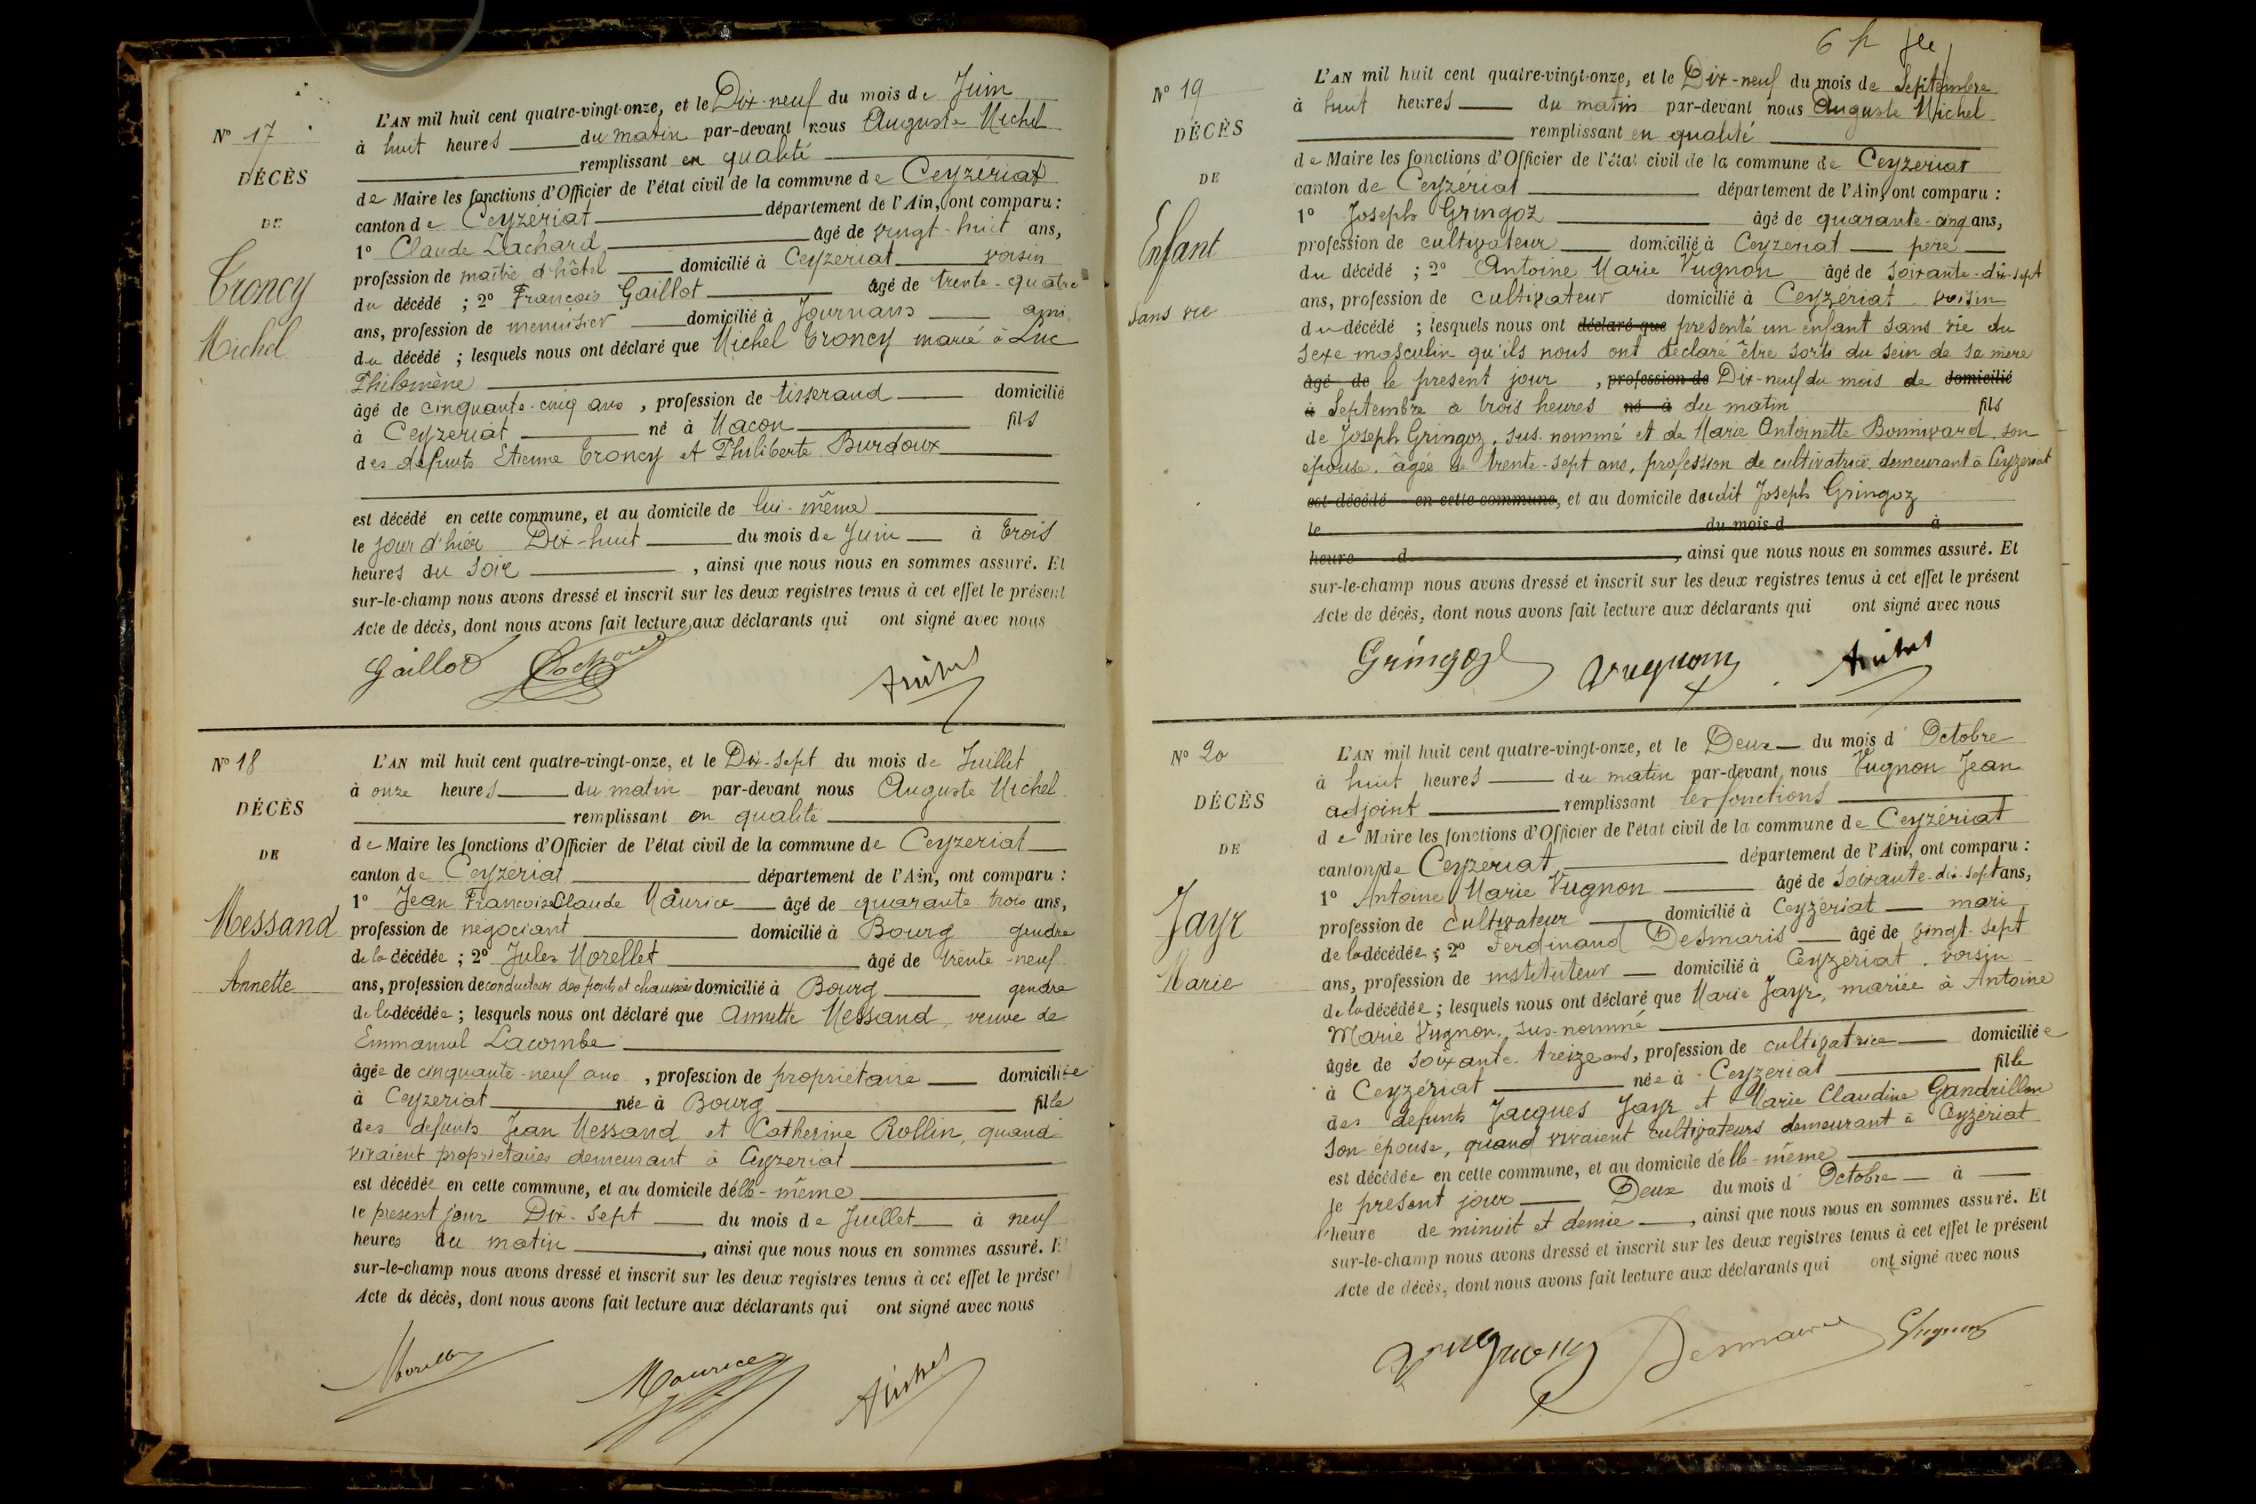 N° 17
DÉCÈS
DE
Troncy
Michel
L'AN mil huit cent quatre-vingt-onze, et le Dix-neuf du mois de Juin
à huit heures du matin par-devant nous Auguste Michel
remplissant en qualité
de Maire les fonctions d'Officier de l'état civil de la commune de Ceyzériat
canton de Ceyzériat département de l'Ain, ont comparu :
1° Claude Lachard âgé de vingt-huit ans,
profession de maître d'hôtel domicilié à Ceyzeriat voisin
du décédé ; 2° François Gaillot âgé de trente-quatre
ans, profession de menuisier domicilié à Journans ami
du décédé ; lesquels nous ont déclaré que Michel Troncy marié à Luc
Philomène
âgé de cinquante-cinq ans, profession de tisserand domicilié
à Ceyzeriat né à Macon fils
des défunts Etienne Troncy et Philiberte Burdoux
est décédé en cette commune, et au domicile de lui-même
le jour d'hier Dix-huit du mois de Juin à trois
heures du soir, ainsi que nous nous en sommes assuré. Et
sur-le-champ nous avons dressé et inscrit sur les deux registres tenus à cet effet le présent
Acte de décès, dont nous avons fait lecture aux déclarants qui ont signé avec nous
Gaillot Lachard
N° 18
DÉCÈS
DE
Messand
Annette
L'AN mil huit cent quatre-vingt-onze, et le Dix-sept du mois de Juillet
à onze heures du matin par-devant nous Auguste Michel
remplissant en qualité
de Maire les fonctions d'Officier de l'état civil de la commune de Ceyzeriat
canton de Ceyzériat département de l'Ain, ont comparu :
1° Jean François Claude Maurice âgé de quarante trois ans,
profession de négociant domicilié à Bourg gendre
de la décédée ; 2° Jules Morellet âgé de trente-neuf
ans, profession de conducteur des ponts et chaussées domicilié à Bourg gendre
de la décédée ; lesquels nous ont déclaré que Annette Messand, veuve de
Emmanuel Lacombe
âgée de cinquante-neuf ans, profession de propriétaire domiciliée
à Ceyzeriat née à Bourg fille
des défunts Jean Messand et Catherine Rollin, quand
vivaient propriétaires demeurant à Ceyzeriat
est décédée en cette commune, et au domicile d'elle-même
le présent jour Dix-sept du mois de Juillet à neuf
heures du matin, ainsi que nous nous en sommes assuré. Et
sur-le-champ nous avons dressé et inscrit sur les deux registres tenus à cet effet le prése
Acte de décès, dont nous avons fait lecture aux déclarants qui ont signé avec nous
Morellet Maurice
N° 19
DÉCÈS
DE
Enfant
sans vie
L'AN mil huit cent quatre-vingt-onze, et le Dix-neuf du mois de Septembre
à huit heures du matin par-devant nous Auguste Michel
remplissant en qualité
de Maire les fonctions d'Officier de l'état civil de la commune de Ceyzeriat
canton de Ceyzériat département de l'Ain, ont comparu :
1° Joseph Gringoz âgé de quarante-cinq ans,
profession de cultivateur domicilié à Ceyzeriat père
du décédé ; 2° Antoine Marie Vugnon âgé de soixante-dix-sept
ans, profession de cultivateur domicilié à Ceyzériat voisin
du décédé ; lesquels nous ont déclaré que présenté un enfant sans vie du
sexe masculin qu'ils nous ont déclaré être sorti du sein de sa mère
âgé de le présent jour, profession de Dix-neuf du mois de domicilié
à Septembre à trois heures né à du matin fils
de Joseph Gringoz, sus-nommé et de Marie Antoinette Bonnivard, son
épouse, âgée de trente-sept ans, profession de cultivatrice, demeurant à Ceyzeriat
est décédé en cette commune, et au domicile dudit Joseph Gringoz
le du mois d à
heure d, ainsi que nous nous en sommes assuré. Et
sur-le-champ nous avons dressé et inscrit sur les deux registres tenus à cet effet le présent
Acte de décès, dont nous avons fait lecture aux déclarants qui ont signé avec nous
Gringoz Vugnon
N° 20
DÉCÈS
DE
Jayr
Marie
L'AN mil huit cent quatre-vingt-onze, et le Deux du mois d'Octobre
à huit heures du matin par-devant nous Vugnon Jean
adjoint remplissant les fonctions
de Maire les fonctions d'Officier de l'état civil de la commune de Ceyzériat
canton de Ceyzériat département de l'Ain, ont comparu :
1° Antoine Marie Vugnon âgé de soixante-dix-sept ans,
profession de cultivateur domicilié à Ceyzériat mari
de la décédée ; 2° Ferdinand Desmaris âgé de vingt-sept
ans, profession de instituteur domicilié à Ceyzériat, voisin
de la décédée ; lesquels nous ont déclaré que Marie Jayr, mariée à Antoine
Marie Vugnon, sus-nommé
âgée de soixante-treize ans, profession de cultivatrice domiciliée
à Ceyzériat née à Ceyzeriat fille
des défunts Jacques Jayr et Marie Claudine Gandrillon
son épouse, quand vivaient cultivateurs demeurant à Ceyzériat
est décédée en cette commune, et au domicile d'elle-même
le présent jour Deux du mois d'Octobre à
l'heure de minuit et demie, ainsi que nous nous en sommes assuré. Et
sur-le-champ nous avons dressé et inscrit sur les deux registres tenus à cet effet le présent
Acte de décès, dont nous avons fait lecture aux déclarants qui ont signé avec nous
Vugnon Desmaris Vugnon